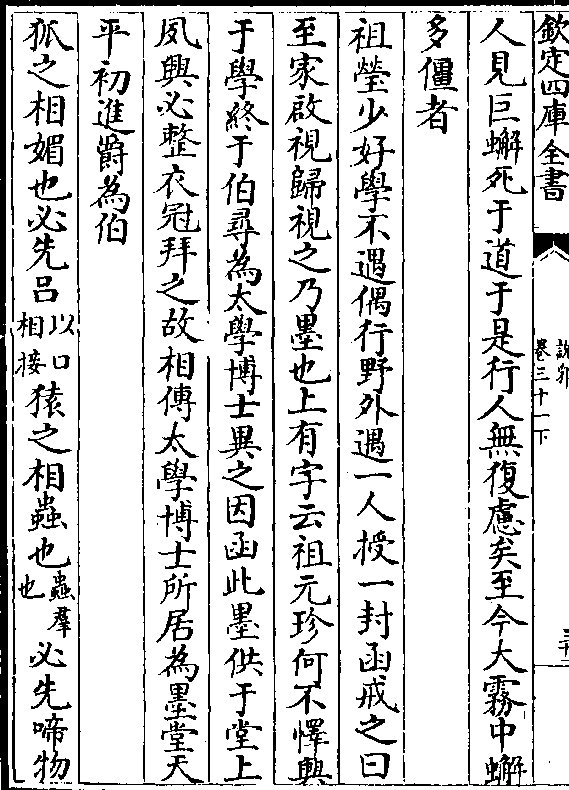 欽定四庫全書
說郛
卷三十一下
三十二
人見巨蠏死于道于是行人無復慮矣至今大霧中蠏
多僵者
祖瑩少好學不遇偶行野外遇一人授一封函戒之曰
至家啟視歸視之乃墨也上有字云祖元珍何不懌興
于學終于伯尋為太學博士異之因函此墨供于堂上
夙興必整衣冠拜之故相傳太學博士所居為墨堂天
平初進爵為伯
狐之相媚也必先呂以口相接猿之相蟲也蟲羣也必先啼物